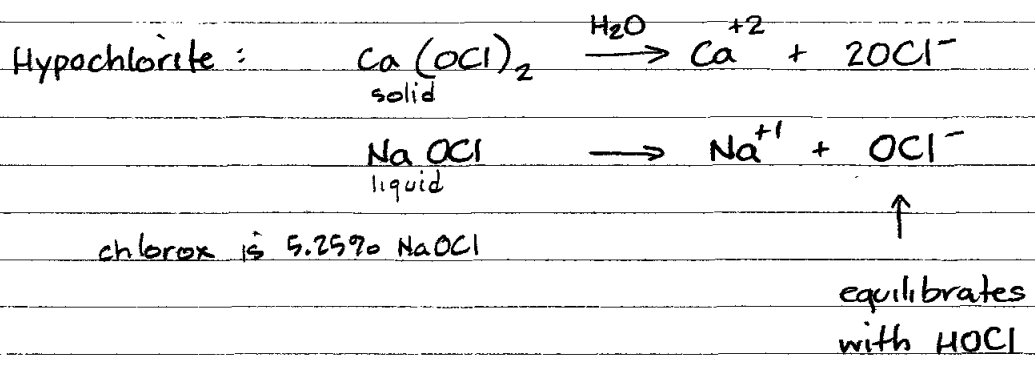 Hypochlorite : Ca (OCl)₂ —H₂O→ Ca⁺² + 2OCl⁻
solid
NaOCl → Na⁺¹ + OCl⁻
liquid
↑
chlorox is 5.25% NaOCl
equilibrates
with HOCl